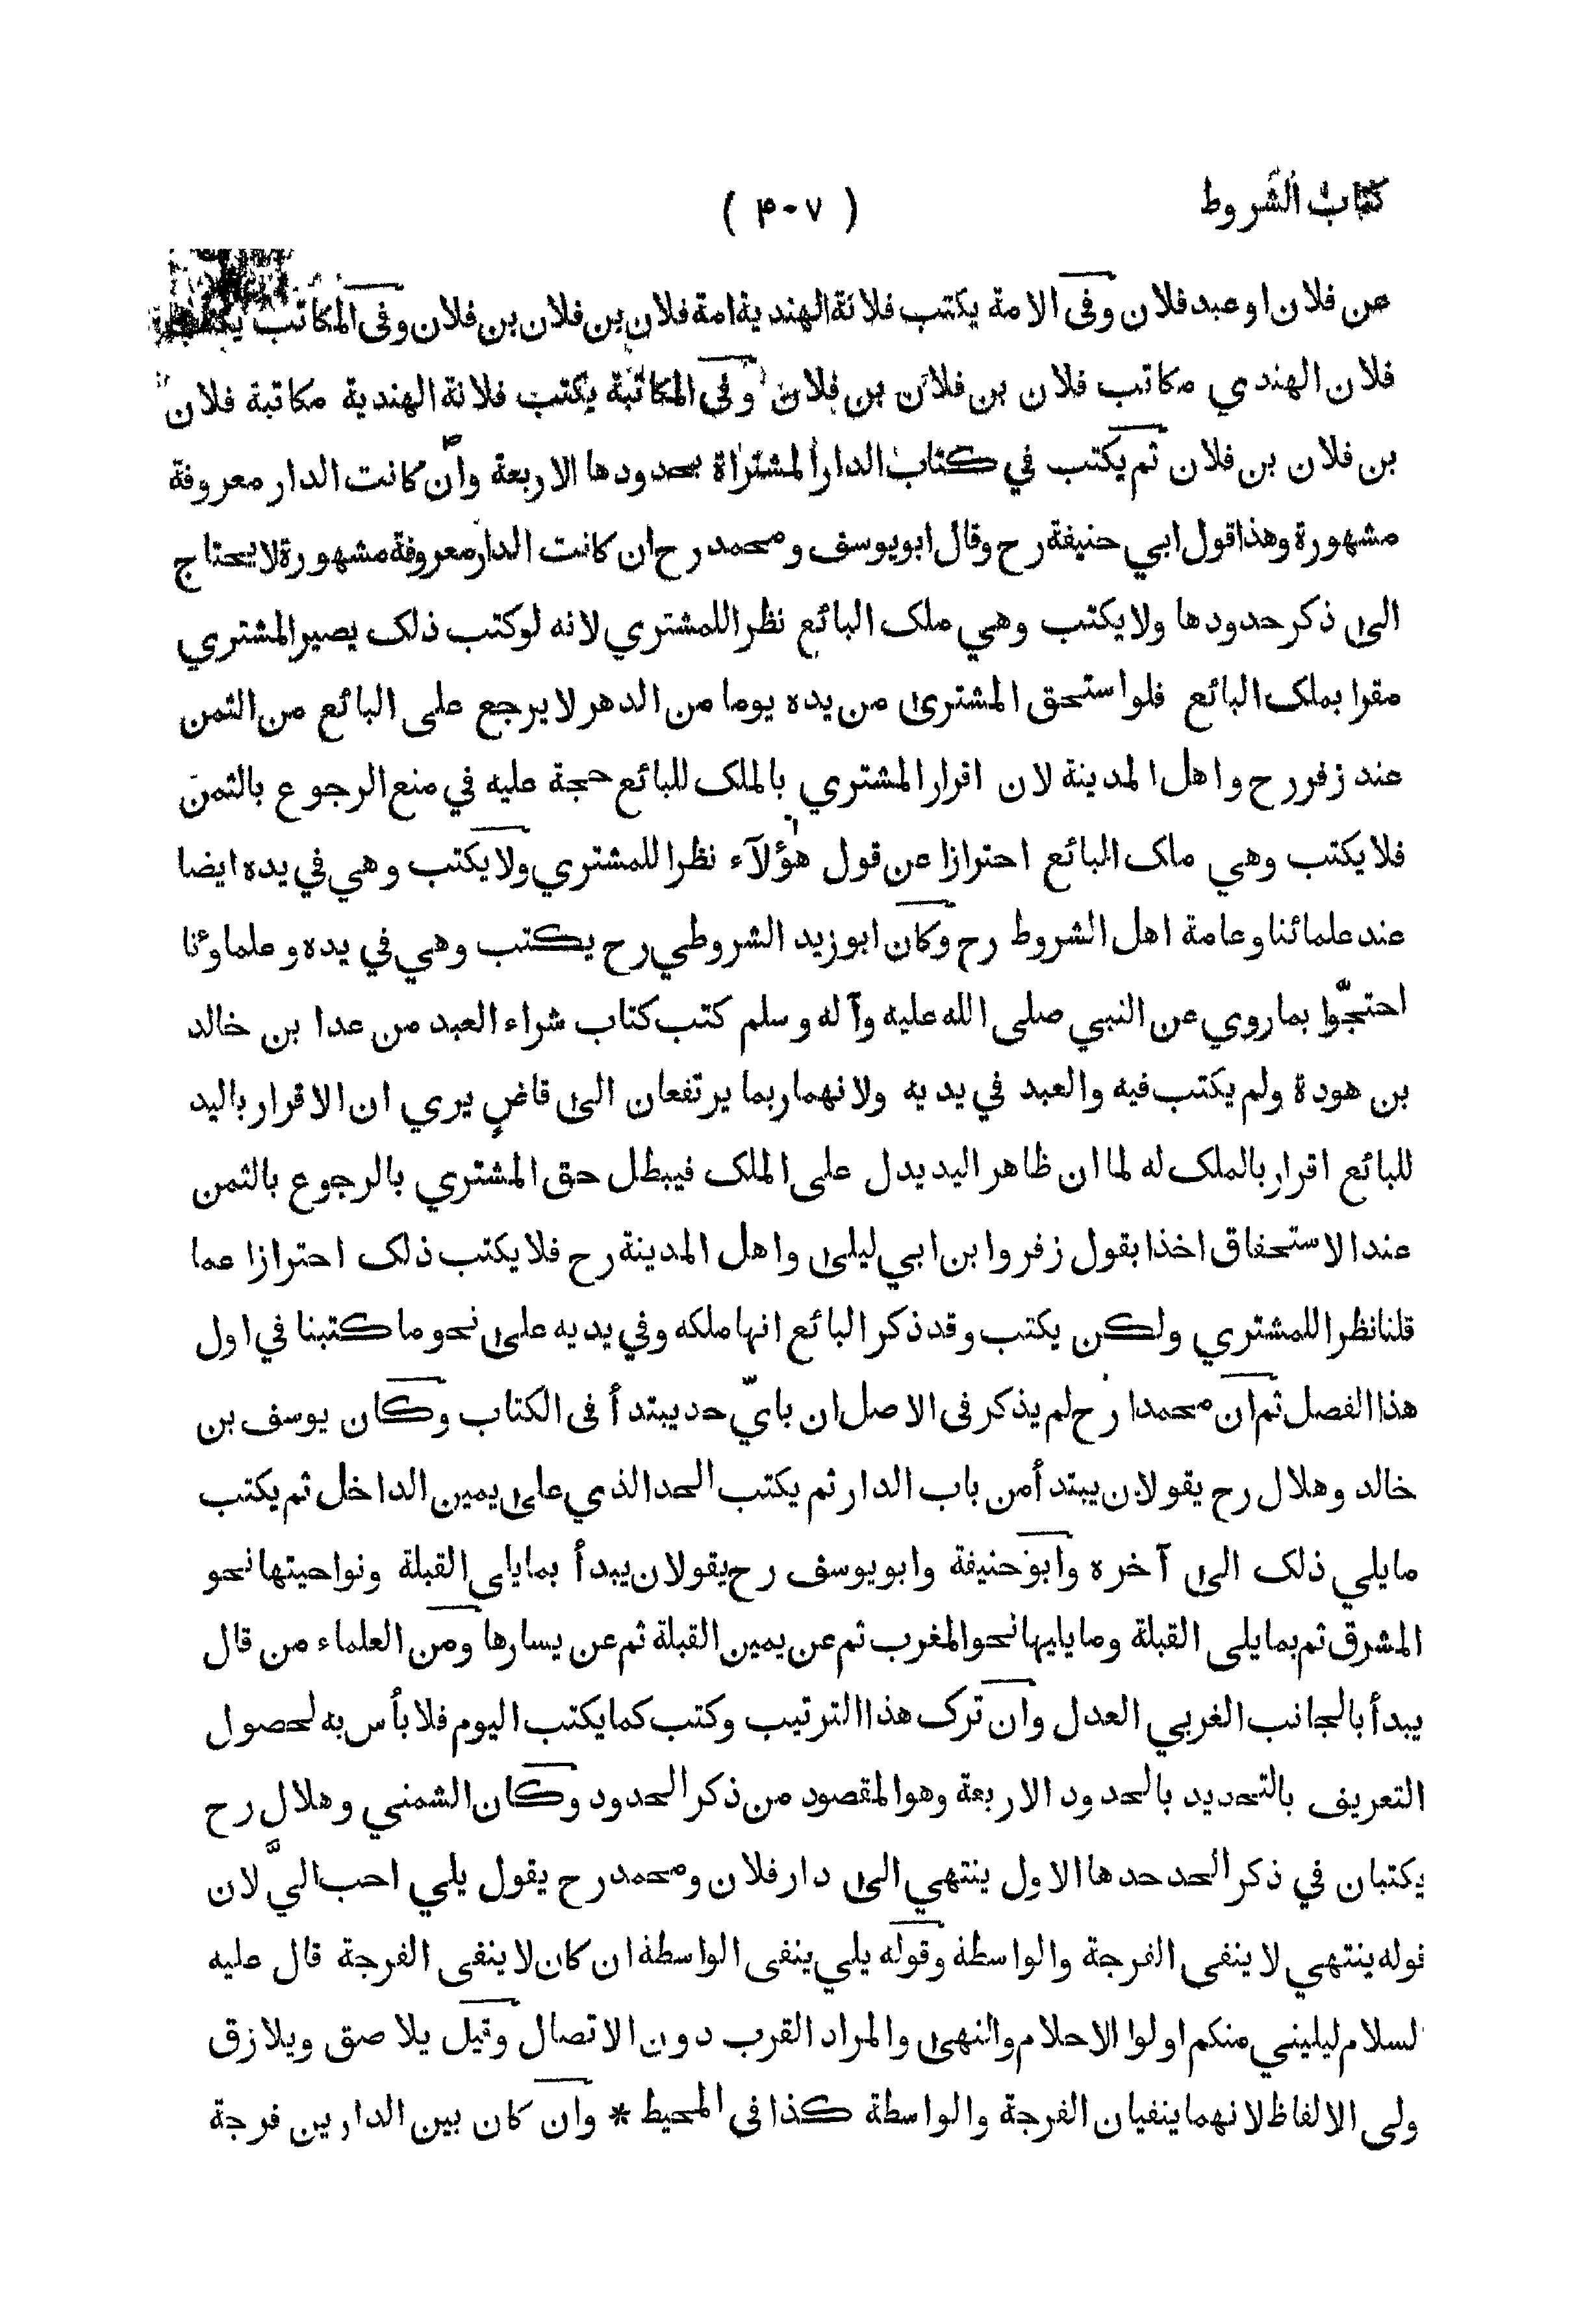 كتاب الشروط
( ۴۰۷ )
عن فلان او عبد فلان وفى الامة يكتب فلانة الهندية امة فلان بن فلان بن فلان وفى المكاتب
فلان الهندي مكاتب فلان بن فلان بن فلان وفى المكاتبة يكتب فلانة الهندية مكاتبة فلان
بن فلان بن فلان ثم يكتب في كتاب الدار المشتراة بحدودها الاربعة وان كانت الدار معروفة
مشهورة وهذا قول ابي حنيفة رح وقال ابو يوسف ومحمد رح ان كانت الدار معروفة مشهورة لا يحتاج
الى ذكر حدودها ولا يكتب وهي ملك البائع نظرا للمشتري لانه لو كتب ذلك يصير المشتري
مقرا بملك البائع فلو استحق المشترى من يده يوما من الدهر لا يرجع على البائع من الثمن
عند زفر رح واهل المدينة لان اقرار المشتري بالملك للبائع حجة عليه في منع الرجوع بالثمن
فلا يكتب وهي ملك البائع احترازا عن قول هؤلآء نظرا للمشتري ولا يكتب وهي في يده ايضا
عند علمائنا وعامة اهل الشروط رح وكان ابو زيد الشروطي رح يكتب وهي في يده وعلماؤنا
احتجّوا بما روي عن النبي صلى الله عليه وآله وسلم كتب كتاب شراء العبد من عدا بن خالد
بن هودة ولم يكتب فيه والعبد في يديه ولانهما ربما يرتفعان الى قاضٍ يري ان الاقرار باليد
للبائع اقرار بالملك له لما ان ظاهر اليد يدل على الملك فيبطل حق المشتري بالرجوع بالثمن
عند الاستحقاق اخذا بقول زفر وابن ابي ليلى واهل المدينة رح فلا يكتب ذلك احترازا عما
قلنا نظرا للمشتري ولكن يكتب وقد ذكر البائع انها ملكه وفي يديه على نحو ما كتبنا في اول
هذا الفصل ثم ان محمدا رح لم يذكر فى الاصل ان بايّ حد يبتدأ فى الكتاب وكان يوسف بن
خالد وهلال رح يقولان يبتدأ من باب الدار ثم يكتب الحد الذي على يمين الداخل ثم يكتب
ما يلي ذلك الى آخره وابو حنيفة وابو يوسف رح يقولان يبدأ بما يلى القبلة ونواحيتها نحو
المشرق ثم بما يلى القبلة وما يليها نحو المغرب ثم عن يمين القبلة ثم عن يسارها ومن العلماء من قال
يبدأ بالجانب الغربي العدل وان ترك هذا الترتيب وكتب كما يكتب اليوم فلا بأس به لحصول
التعريف بالتحديد بالحدود الاربعة وهو المقصود من ذكر الحدود وكان الشمني وهلال رح
يكتبان في ذكر الحد حدها الاول ينتهي الى دار فلان ومحمد رح يقول يلي احب اليّ لان
قوله ينتهي لا ينفى الفرجة والواسطة وقوله يلي ينفى الواسطة ان كان لا ينفى الفرجة قال عليه
لسلام ليليني منكم اولوا الاحلام والنهى والمراد القرب دون الاتصال وقيل يلاصق ويلازق
ولى الالفاظ لانهما ينفيان الفرجة والواسطة كذا فى المحيط * وان كان بين الدارين فرجة